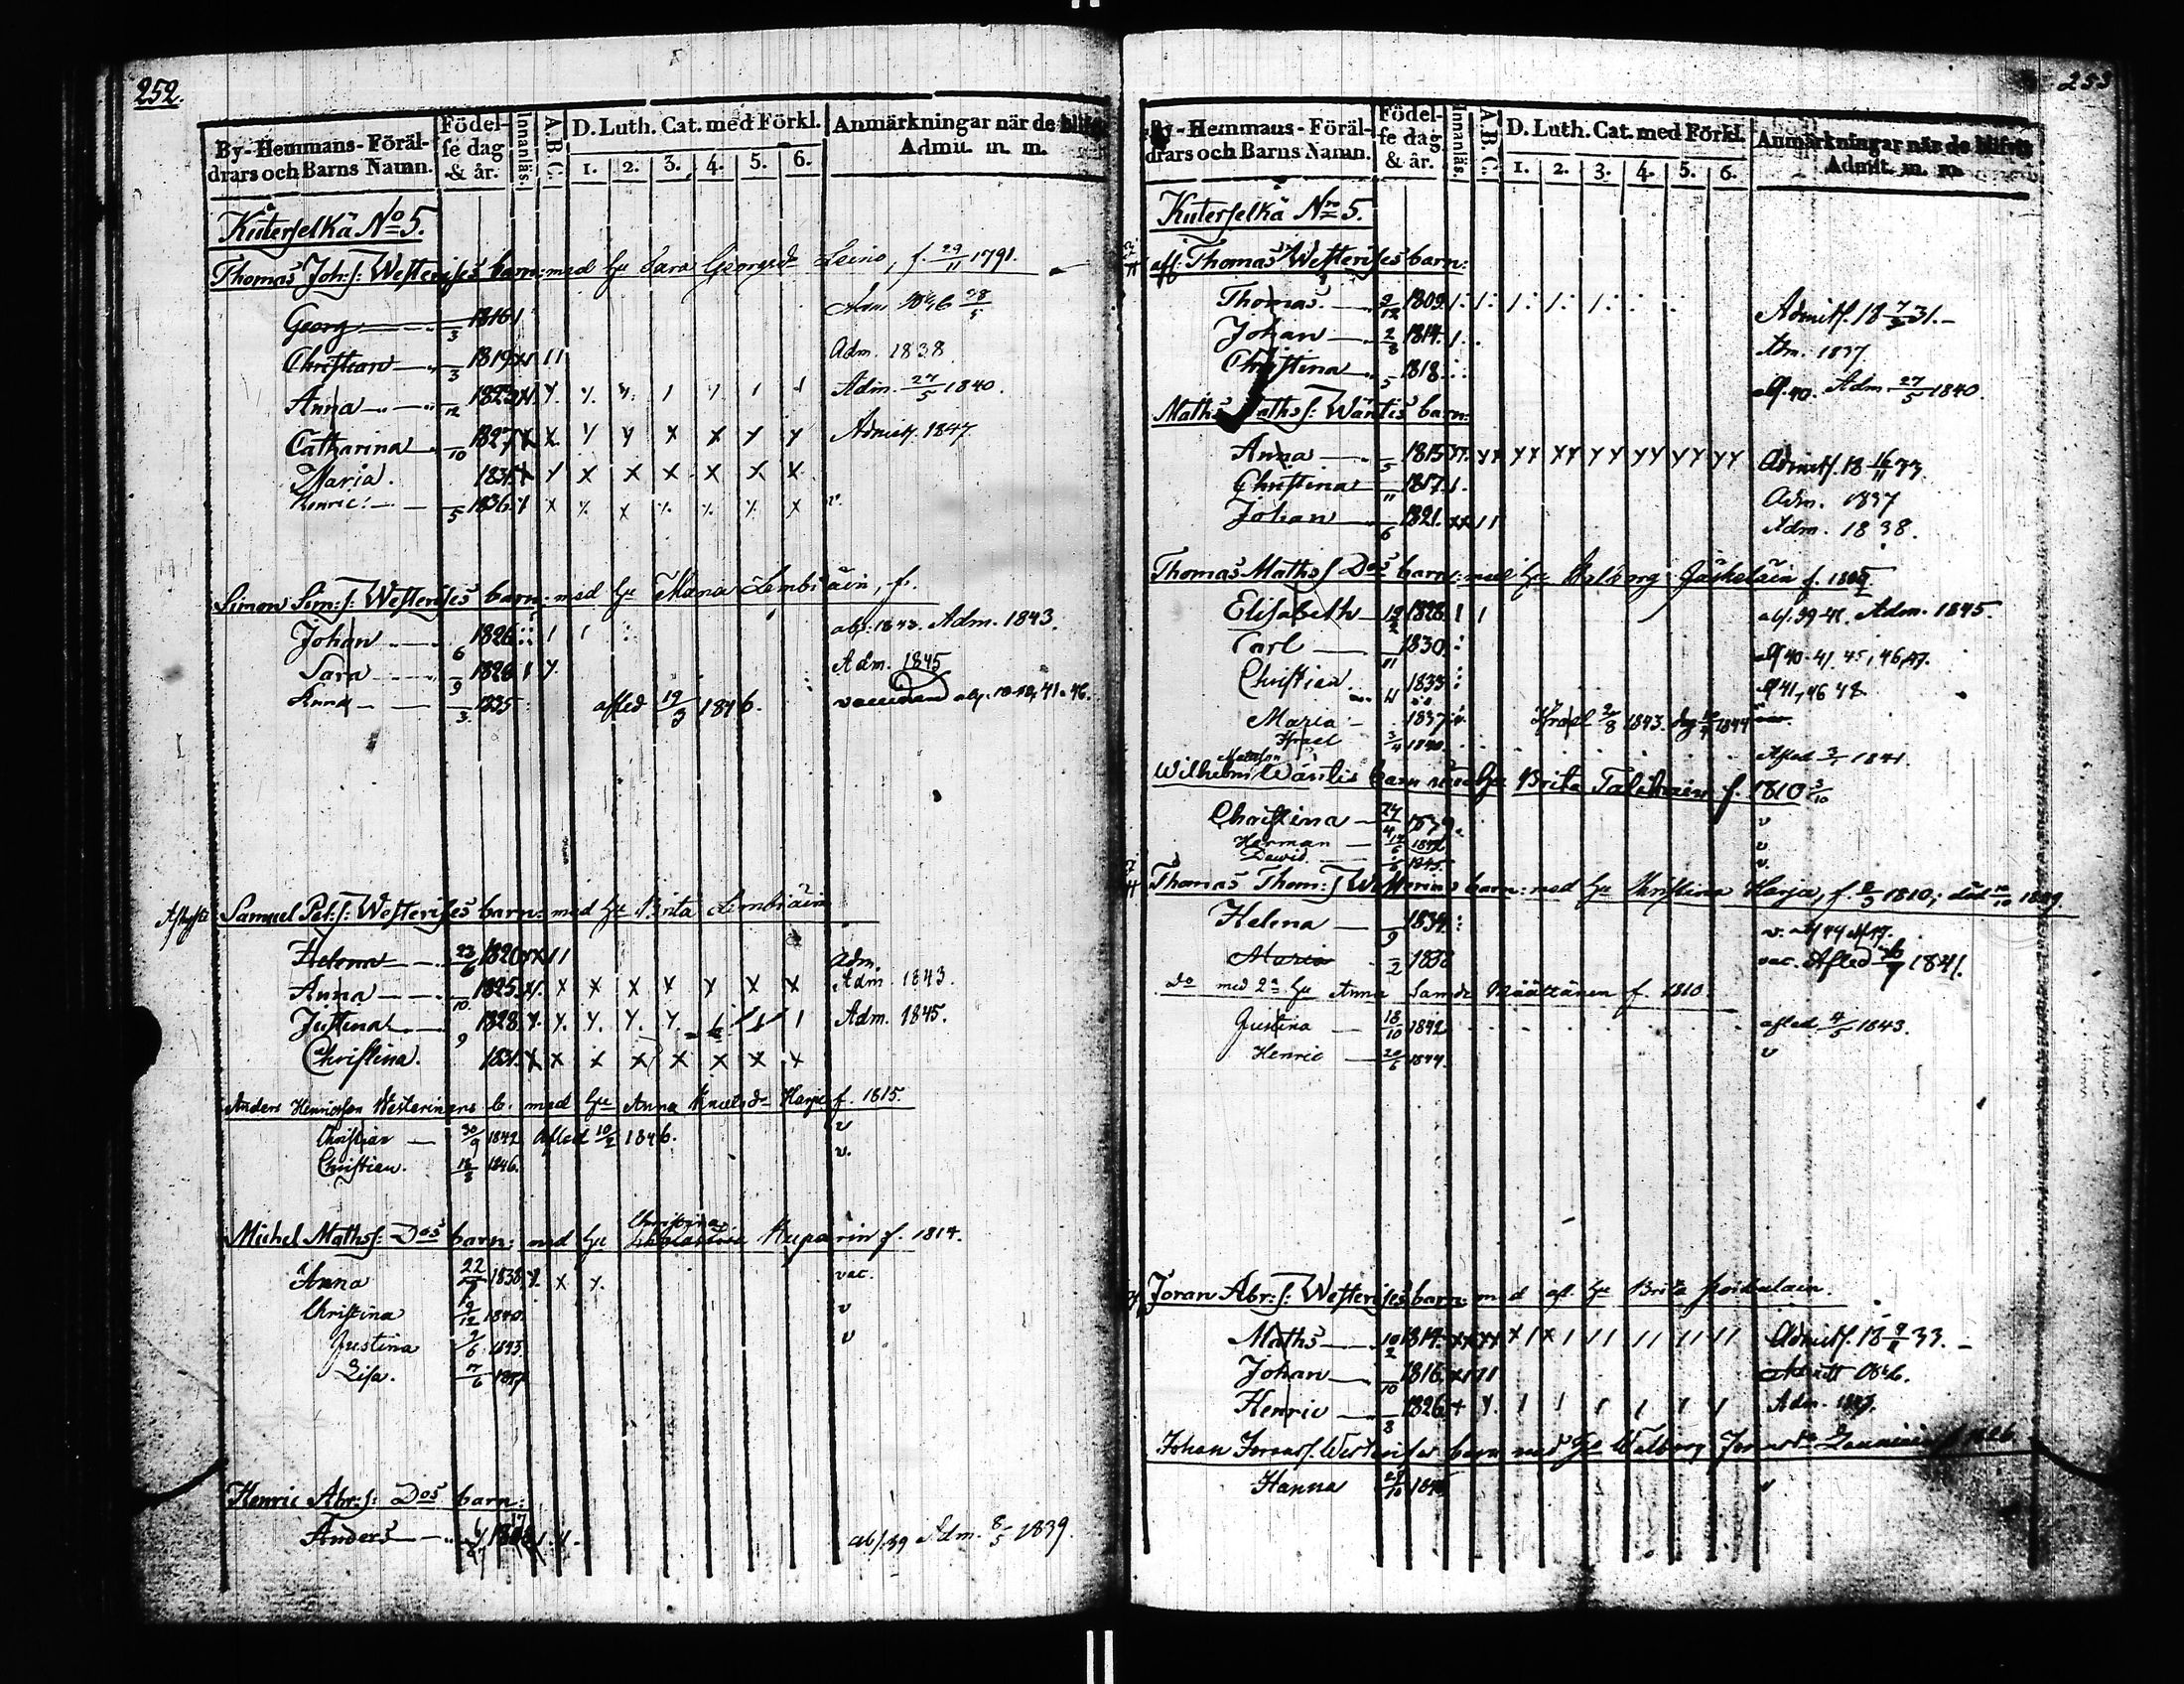 252.
By-Hemmans-Föräl-
drars och Barns Namn.
Födel-
se dag
& år.
Innanläs.
A.B.C.
D. Luth. Cat. med Förkl.
1. 2. 3. 4. 5. 6.
Anmärkningar när de blifvit
Admit. m. m.
Kuterselkä No 5.
Thomas Joh:s: Westerises barn: med hu Sara Georgsdr Leino, f. 29/11 1791.
Georg /3 1816 Adm 1846 28/5
Christian /3 1819 x 1 1 1 Adm. 1838
Anna /12 1823 Adm. 27/5 1840.
Catharina /10 1827 x x y y x x y y Admitt. 1847.
Maria. 1831 x y x x x x x x
Henric. /5 1836. v.
Simon Sim:s: Westerises barn: med hu Maria Lembiäin, f.
Johan /6 1826 abs: 1842. Adm. 1843.
Sara /9 1828 1 y. Adm. 1845
Anna /3 1835 afled 19/3 1846.
Samuel Pet:s: Westerises barn: med hu Brita Lembiäin
Helena 23/6 1820 xx 11 Adm.
Anna /10 1825. x x x x y x x Adm. 1843.
Justina /9 1828 y. y. y. y. y. Adm. 1845.
Christina. 1831. x x x x x x x x
Anders Henricsson Westerinens b. med hu Anna Knutsdr Harja f. 1815.
Christian 30/9 1842 Afled 10/2 1846. v
Christian. 18/3 1846. v.
Michel Mathss: Dos barn: med hu Christina Kuparin f. 1814.
Anna 22/7 1838. y. x y. vac.
Christina 19/12 1840. v
Justina 2/6 1843. v
Lisa. 7/6 1847
Henric Abr:s: Dos barn:
Anders abs. 39 Adm. 8/5 1839.
253
By-Hemmans-Föräl-
drars och Barns Namn.
Födel-
se dag
& år.
Innanläs.
A.B.C.
D. Luth. Cat. med Förkl.
1. 2. 3. 4. 5. 6.
Anmärkningar när de blifvit
Admit. m. m.
Kuterselkä Nro 5.
aff: Thomas Westerises barn:
Thomas. 9/12 1809. Admitt. 18 7/ 31.
Johan 2/8 1814. Adm. 1837.
Christina /5 1818 abs. 40. Adm. 27/5 1840.
Maths Maths s: Wäntis barn:
Anna /5 1815 yy yy yy yy yy yy yy Admitt. 18 16/11 33.
Christina /11 1817. 1. Adm. 1837
Johan /6 1821. xx 11 Adm. 1838.
Thomas Maths s Dos barn: med hu Walborg Jäskeläin f. 1805
Elisabeth 19/2 1828. 1 1 abs. 39-41. Adm. 1845.
Carl /11 1830. abs 40-41. 45, 46, 47.
Christian 1833 abs 41, 46 48.
Maria 1837 Israel 2/8 1843.
Israel 3/4 1840. Afled 3/ 1841.
Wilhelm Mattsson Wäntis barn med hu Brita Taleikain f. 1810 5/10
Christina 24/4 1839. v
Herman 1842 v
Dawid 1845 v.
Thomas Thom:s Westerins barn: med hu Christina Harja, f. 2/3 1810; död /10 1839.
Helena /9 1834
Maria /2 1838 vac. Afled 1841.
Do med 2a hu Anna Samdr Määttänen f. 1810.
Justina 18/10 1842 afled 4/5 1843.
Henric 20/6 1844. v
Joran Abr:s: Westerises barn: med af. hu Brita
Maths 10/2 1814. Admitt. 18 33.
Johan /10 1816. Admitt 1846.
Henric /3 1826. Adm. 1843.
Johan Joranss. Westerises barn med hu Walborg Joransdr 1826
Hanna v